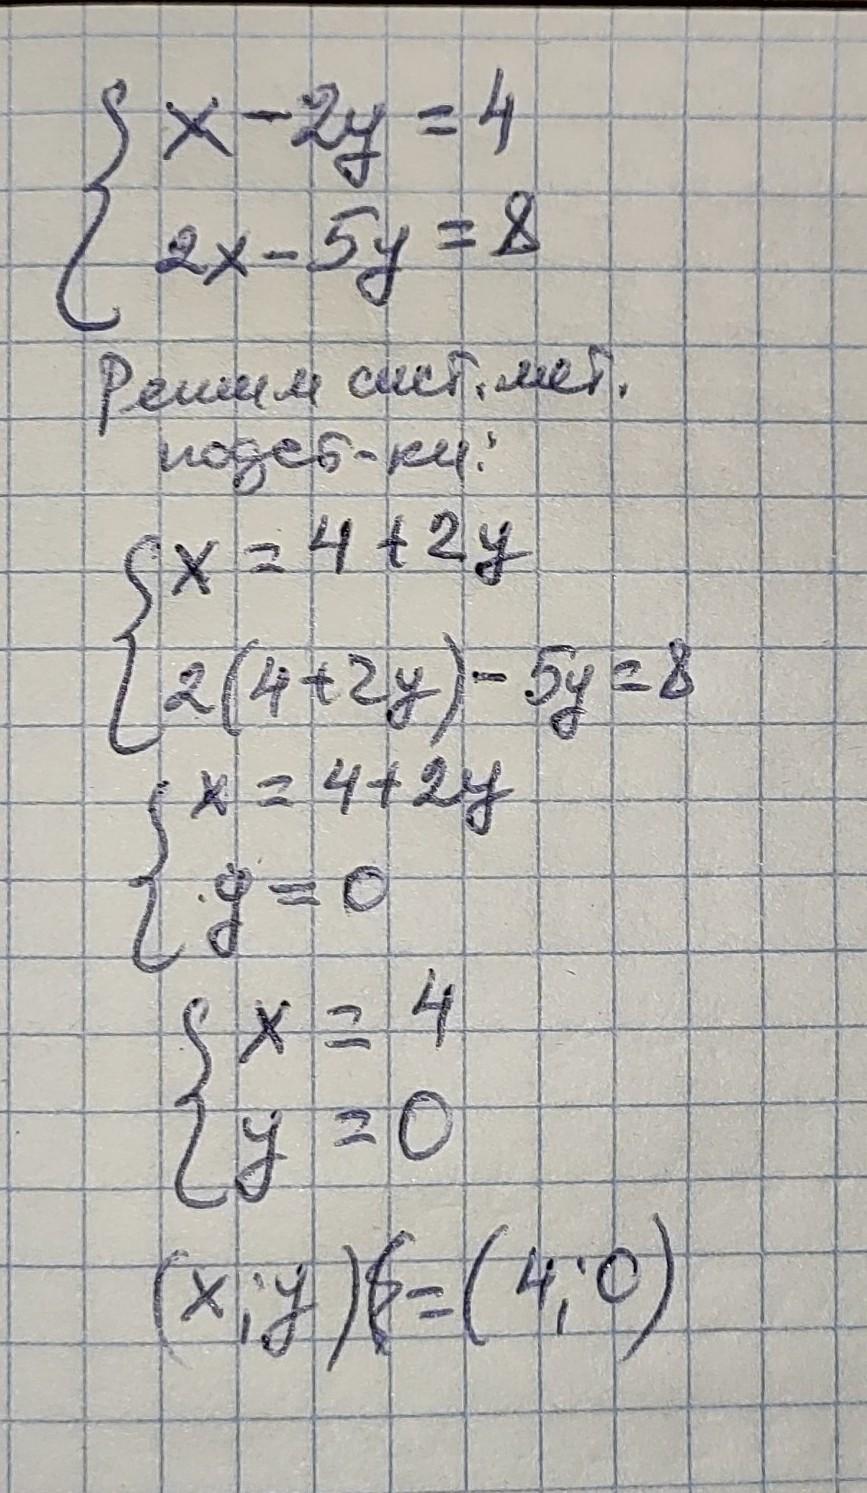 x - 2y = 4
2x - 5y = 8
Решим сист. мет.
подст-ки:
x = 4 + 2y
2(4+2y) - 5y = 8
x = 4+2y
y = 0
x = 4
y = 0
(x; y) = (4; 0)